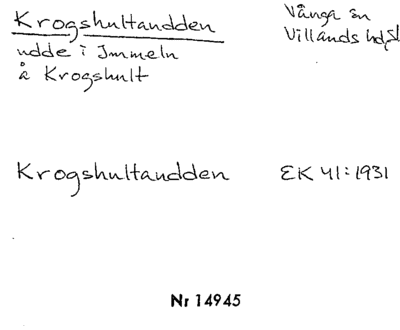 Krogshultaudden
udde i Immeln
å Krogshult
Vånga sn
Villands hd, Sk
Krogshultaudden
EK 41:1931
Nr 14945